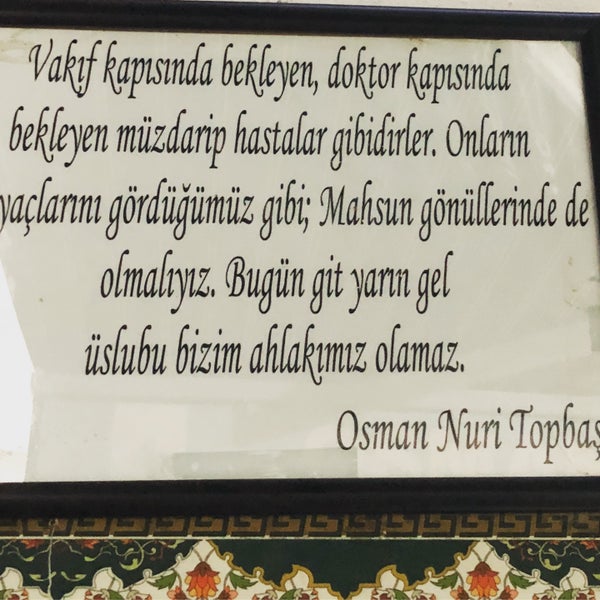 Vakıf kapısında bekleyen, doktor kapısında
bekleyen müzdarip hastalar gibidirler. Onların
yaçlarını gördüğümüz gibi; Mahsun gönüllerinde de
olmalıyız. Bugün git yarın gel
üslubu bizim ahlakımız olamaz.
Osman Nuri Topbaş